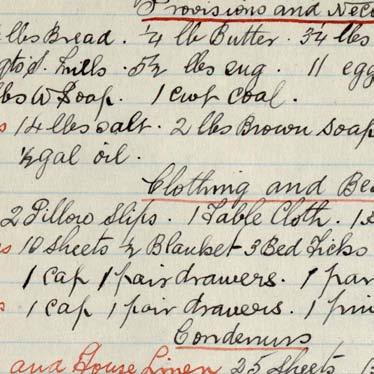 Provisions and Nec
lbs Bread. ¼ lb Butter. 3¼ lbs
5½ lbs sug. 11 egg
lbs W Soap. 1 cwt coal.
14 lbs salt. 2 lbs Brown soap
½ gal oil.
Clothing and Be
2 Pillow slips. 1 Table Cloth. 1
10 Sheets ½ Blanket - 3 Bed Ticks
1 cap 1 pair drawers. 1 pair
1 cap 1 pair drawers. 1
Condemns
and House Linen 25 sheets